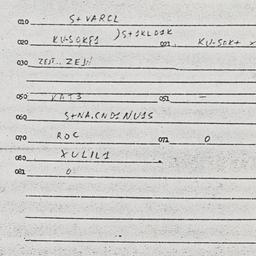 010 S+VARCL
020 KU-SOKF1 )S+1KLD1K 021. KU-SOK+
030 ZEJT.. ZEJ
050 KAT3 051 —
060 S+NA.CND1NU1S
070 ROC 071 0
080 XULIL1
081 0